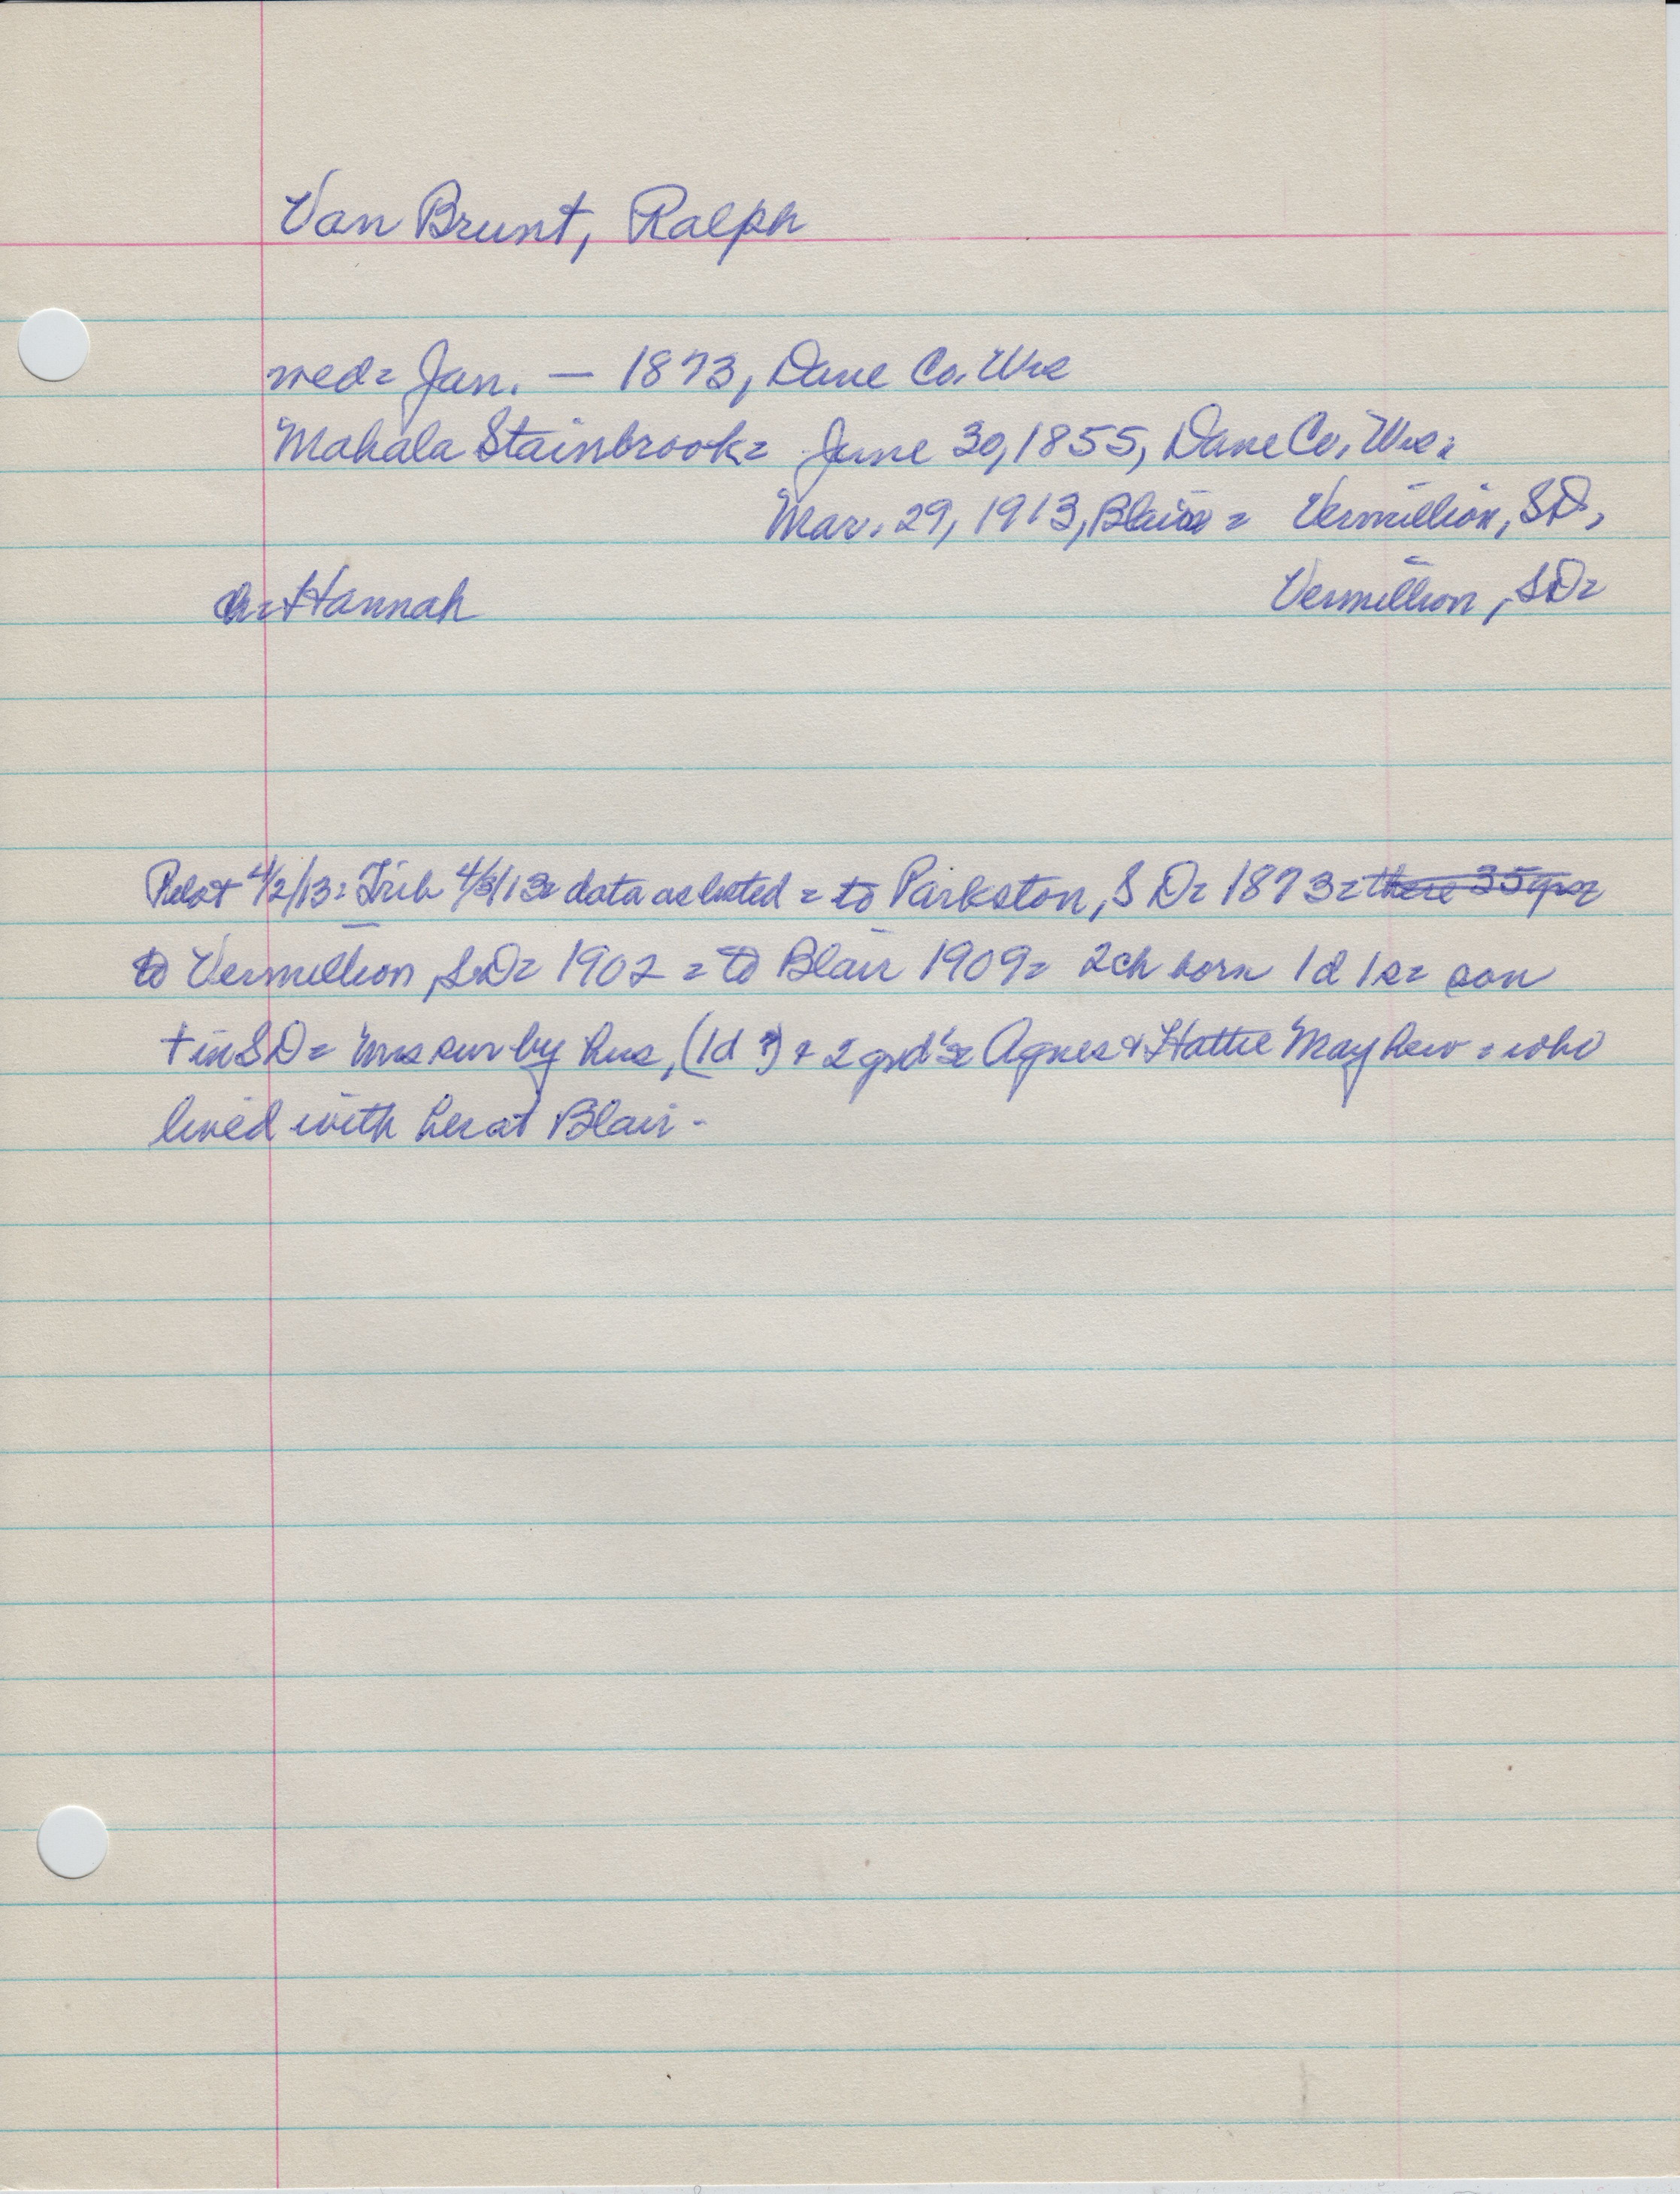 Van Brunt, Ralph
wed= Jan. — 1873, Dane Co. Wis
Mahala Stainbrook= June 30, 1855, Dane Co, Wis=
Mar. 29, 1913, Blair = Vermillion, SD,
ch= Hannah Vermillion, SD=
Pilot 4/2/13= Trib 4/3/13= data as listed = to Parkston, SD= 1873= there 35 yrs
to Vermillion, SD= 1902 = to Blair 1909= 2ch born 1d 1s= son
+ in SD= Mrs sur by hus, (1d ?) + 2 grd's= Agnes & Hattie Mayhew = who
lived with her at Blair -